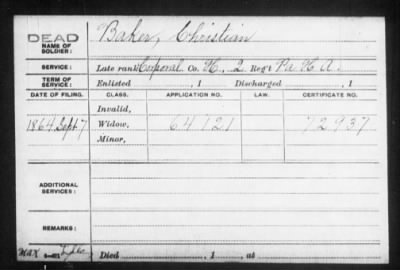 DEAD
NAME OF SOLDIER: Baker, Christian
SERVICE: Late rank Corporal Co. H, 2 Reg't Pa H A.
TERM OF SERVICE: Enlisted , 1 Discharged , 1
DATE OF FILING. CLASS. APPLICATION NO. LAW. CERTIFICATE NO.
Invalid,
1864 Sept 7 Widow, 64721 72937
Minor,
ADDITIONAL SERVICES:
REMARKS:
Died , 1 , at